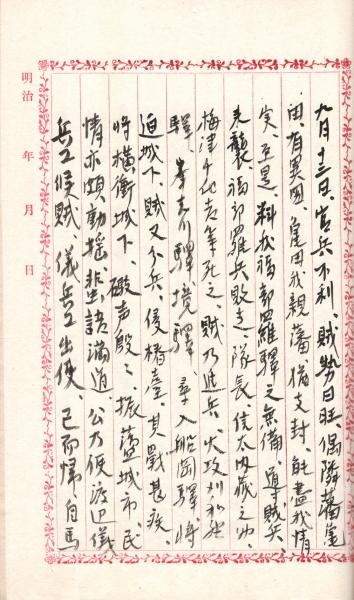 九月十三日、官兵不利、賊勢日旺、偶隣藩亀
田、有異図、亀田我親藩猶支封、能盡我情
実、至是、料我福部羅驛之無備、導賊兵、
来襲、福部羅兵敗走、隊長信太内蔵之助
梅津千代吉等死之、賊乃進兵、火攻刈和野
驛、 驛境驛、 入船岡驛、将
迫城下、賊又分兵、侵椿臺、其戰甚疾、
将横衝城下、礮声殷々、振蕩城市、民
情亦頗動揺、 語満道、公乃使 巴儀
兵工候賊 儀兵工出使、已而帰、自馬
明治 年 月 日